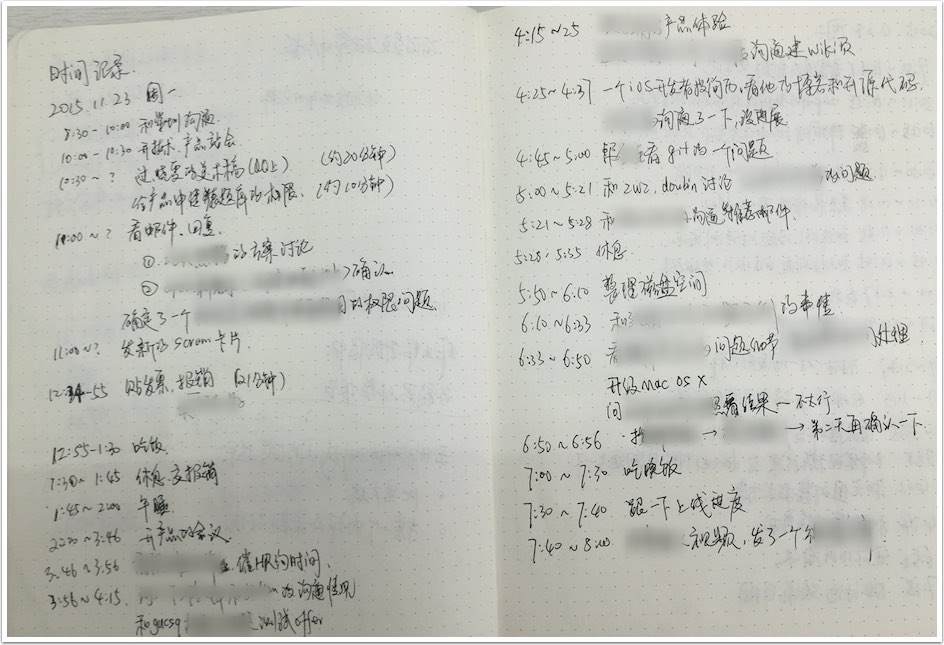 时间记录.
2015.11.23 周一
8:30 - 10:00 和 沟通.
10:00 - 10:30 开技术、产品站会
10:30 ~ ? 过 的美术稿(QQ上) (约20分钟)
给产品中 题库的权限. (约10分钟)
10:00 ~ ? 看邮件、回复.
① 的方案讨论
② 确认
确定了一个 的权限问题
11:00 ~ ? 发新的 scrum 卡片.
12: -55 贴发票,报销 (21分钟)
12:55-1:30 吃饭.
1:30 ~ 1:45 休息.交报销
1:45 ~ 2:00 午睡
2:00 ~ 3:46 开产品的会议
3:46 ~ 3:56 催HR约时间、
3:56 ~ 4:15. 的沟通情况
和 测试offer
4:15 ~ 25 产品体验
沟通建wiki页
4:25 ~ 4:37 一个iOS开发者投简历,看他的博客和开源代码.
沟通了一下,没进展
4:45 ~ 5:00 帮 看git的一个问题
5:00 ~ 5:21 和zwz, 讨论 的问题
5:21 ~ 5:28 和 沟通推荐邮件.
5:28 5:35 休息.
5:50 ~ 6:10 整理磁盘空间
6:10 ~ 6:33 和 的事情
6:33 ~ 6:50 看 问题细节 处理
升级Mac OS X
问 看结果 — 不太行
6:50 ~ 6:56 → → 第二天再确认一下.
7:00 ~ 7:30 吃晚饭
7:30 ~ 7:40 跟一下上线进度
7:40 ~ 8:00 视频,发了一个